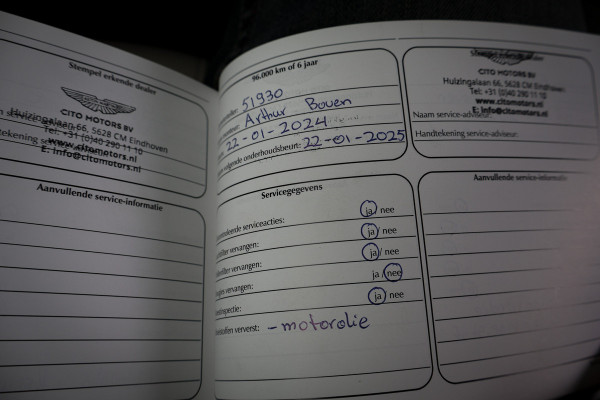 Stempel erkende dealer
CITO MOTORS BV
Hulzingalaan 66, 5628 CM Eindhoven
Tel: +31 (0)40 290 11 10
www.citomotors.nl
E: info@citomotors.nl
Aanvullende service-informatie
96.000 km of 6 jaar
51930
Arthur Boven
22-01-2024
volgende onderhoudsbeurt: 22-01-2025
Servicegegevens
serviceacties: ja / nee
vervangen: ja / nee
vervangen: ja / nee
vervangen: ja / nee
ja / nee
ververst: - motorolie
CITO MOTORS BV
Hulzingalaan 66, 5628 CM Eindhoven
Tel: +31 (0)40 290 11 10
www.citomotors.nl
Naam service-adviseur:
E: info@citomotors.nl
Handtekening service-adviseur:
Aanvullende service-informatie